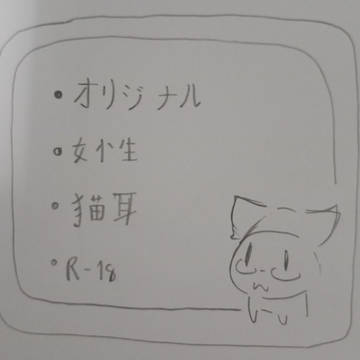 ・オリジナル
・女小生
・猫耳
・R-18